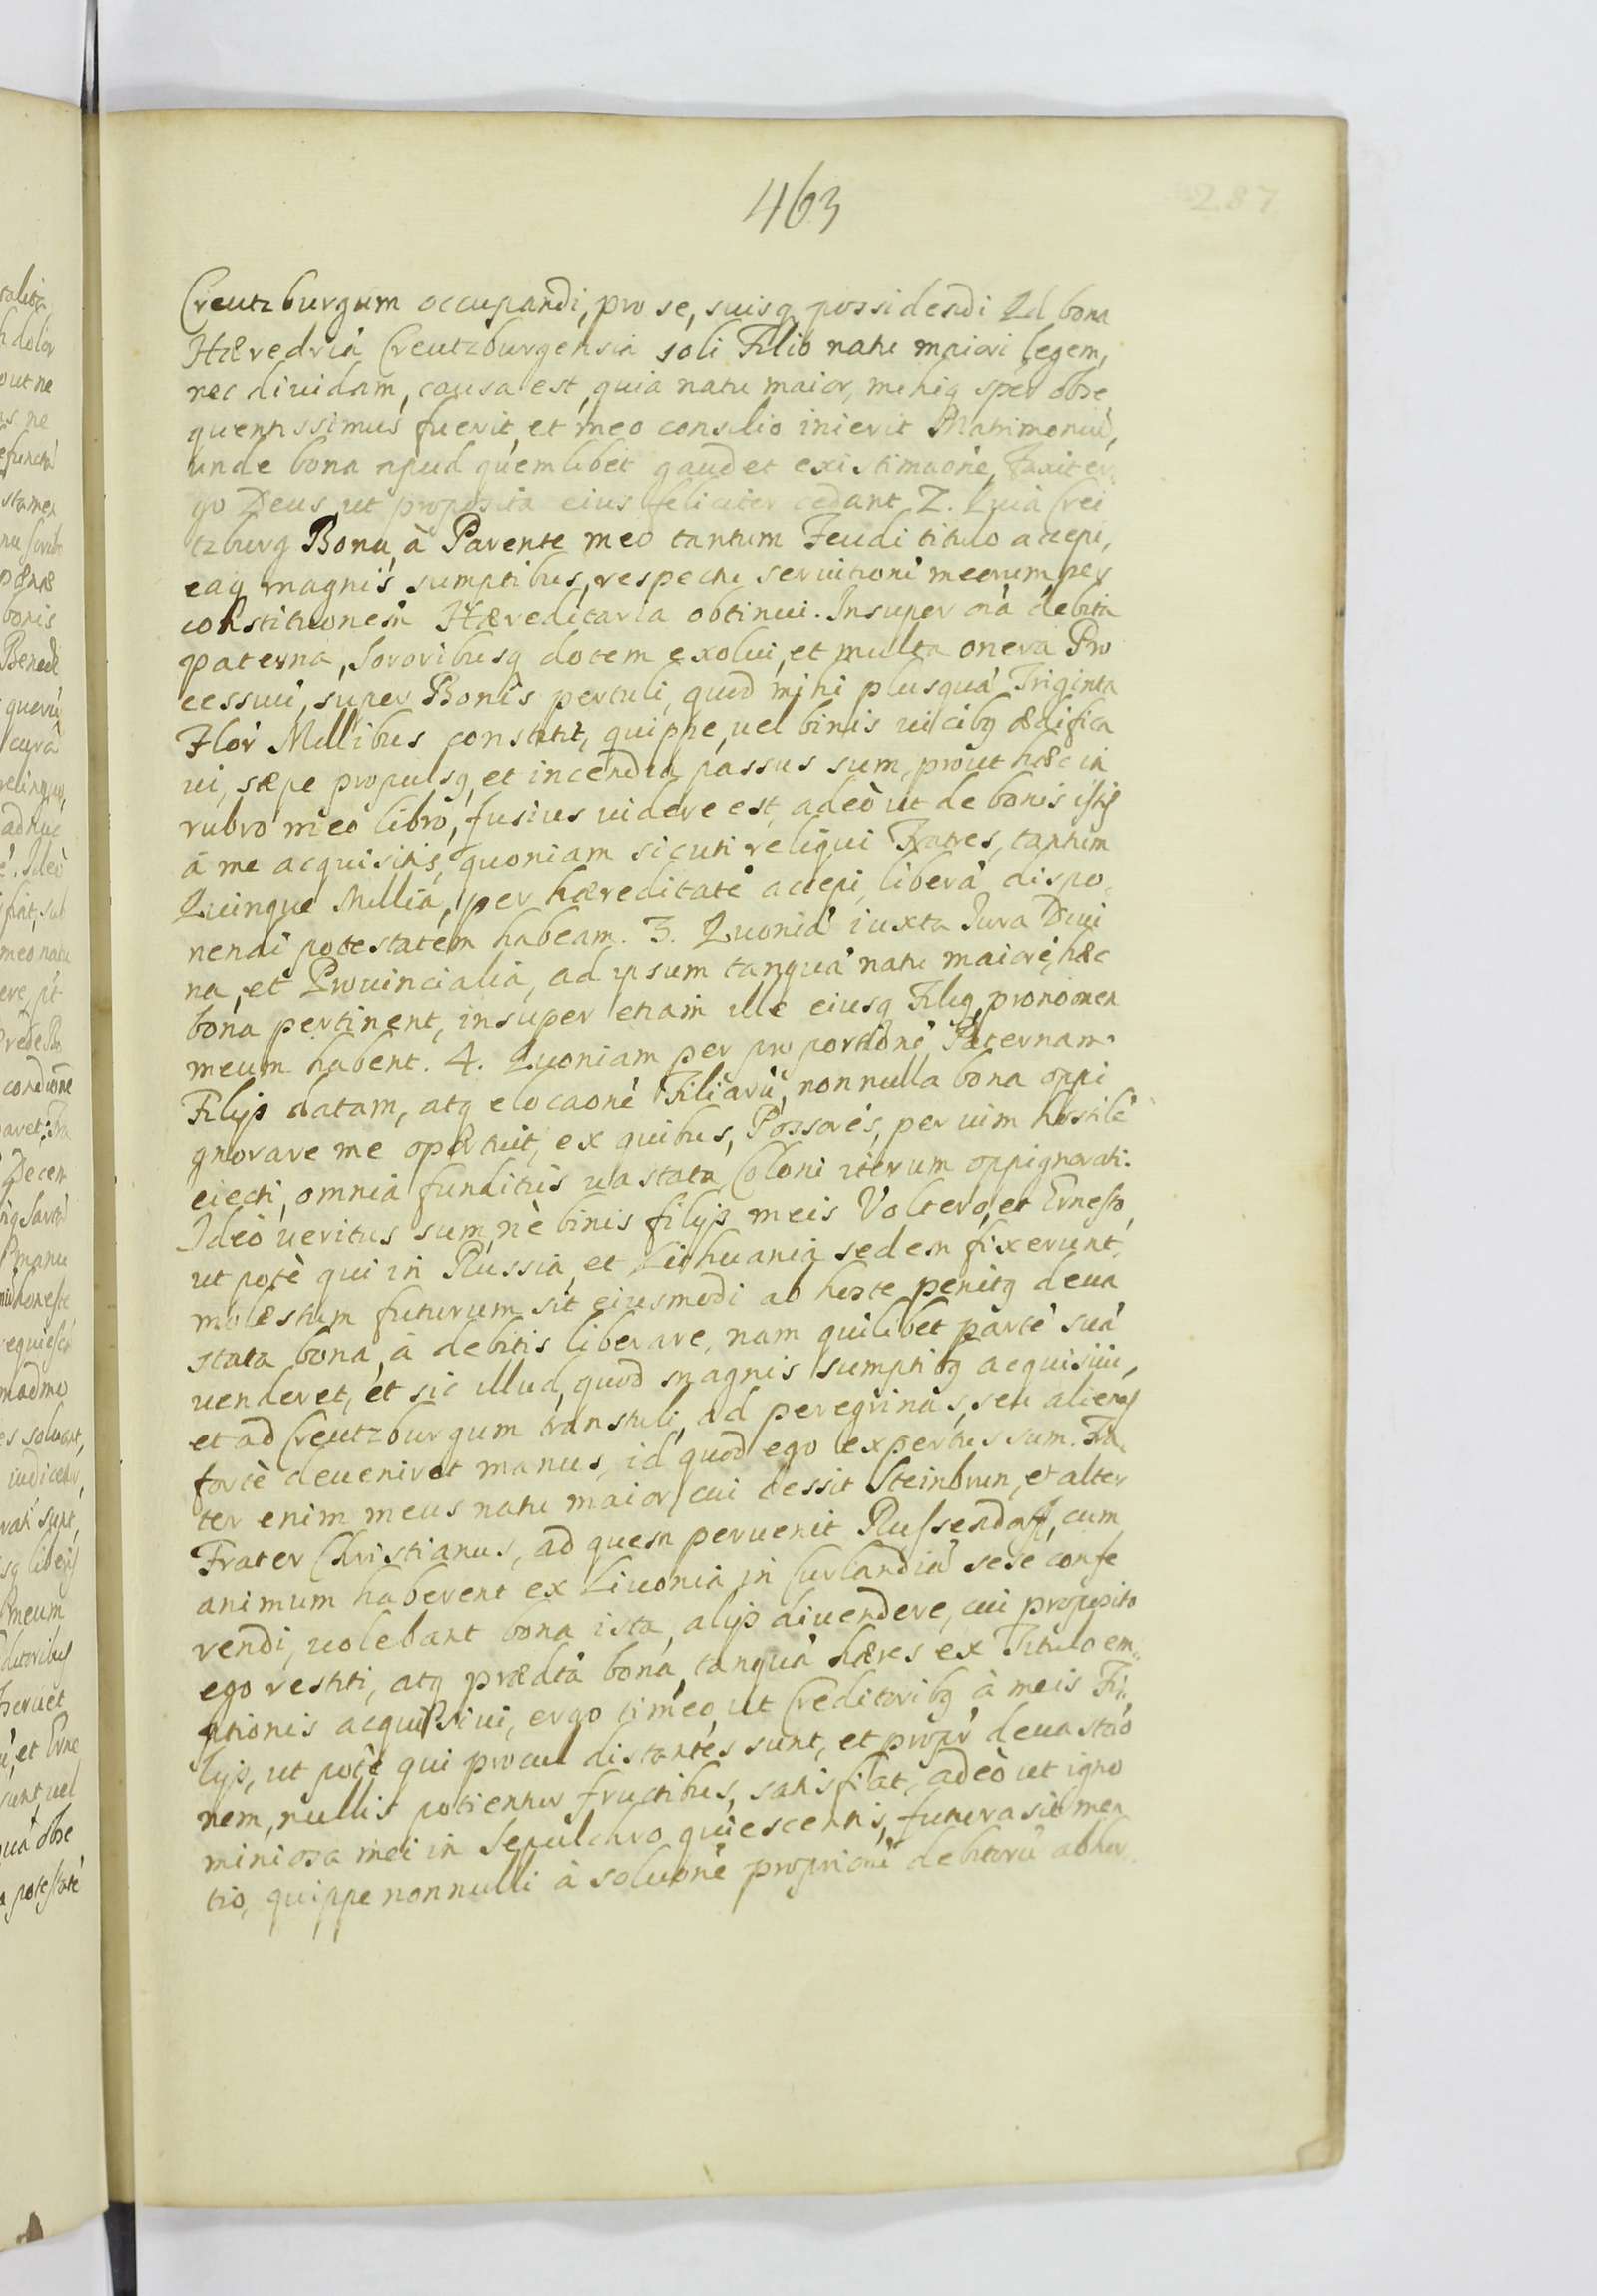 463
287
Creutzburgum occupandi, pro se, suisq possidendi Qd bona
Hæredria Creutzburgensia soli Filio natu maiori legem,
nec diuidam, causa est, quia natu maior, mihiq sper obse
quentissimus fuerit, et meo consilio inierit Matrimoniũ,
unde bona apud quemlibet gaudet existimaone, Faxit er„
go Deus, ut proposita eius feliciter cedant, 2. Quia Crei
tzburg Bona, à Parente meo tantum Feudi titulo accepi,
eaq magnis sumptibus, respectu seruitioni meorum, per
constitutionem Hæreditaria obtinui. Insuper oĩa debita
paterna, Sororibusq dotem exolui, et multa onera Pro
cessuũ, super Bonis pertuli, quod mihi plusquã Triginta
Flor Millibus constitit, quippe, uel binis uicibq ædifica
ui, sæpe propulsq, et incendia passus sum, prout hæc in
rubro meo libro, fusius uidere est, adeò ut de bonis istis
à me acquisitis, quoniam sicuti reliqui Fratres, tantum
Quinque Millia, per hæreditatẽ accepi, liberã dispo„
nendi potestatem habeam. 3. Quoniã iuxta Jura Diui
na, et Prouincialia, ad ipsum tanquã natu maiorẽ, hæc
bona pertinent, insuper etiam ille eiusq Filiq, pronomen
meum habent. 4. Quoniam per proportionẽ Paternam
Filijs datam, atq elocaonẽ Filiarũ, nonnulla bona oppi
gnorare me oportuit, ex quibus, Possores, per uim hostilẽ
eiecti, omnia funditus uastata, Coloni iterum oppignorati.
Ideò ueritus sum, nè binis filijs meis Voltero, et Ernesto,
ut potè qui in Russia, et Lithuania sedem fixerunt,
molestum futurum sit eiusmodi ab hoste penitq deua
stata bona, à debitis liberare, nam quilibet partẽ suã
uenderet, et sic illud, quod magnis sumptibq acquisiui,
et ad Creutzburgum transtuli, ad peregrinas, seu alienas
fortè deueniret manus, id quod ego expertus sum. Fra„
ter enim meus natu maior, cui cessit Steinbrun, et alter
Frater Christianus, ad quem peruenit Russendorff, cum
animum haberent ex Liuonia in Curlandiã sese confe
rendi, uolebant bona ista, alijs diuendere, cui proposito
ego restiti, atq prædta bona, tanquã hæres ex Titulo em„
ptionis acquisiui, ergo timeo, ut Creditoribq à meis Fi„
lijs, ut potè qui procul distantes sunt, et propr deuastaõ
nem, nullis potientur fructibus, satisfiat, adeò ut igno
miniosa mei in Sepulchro quiescentis, futura sit men
tio, quippe nonnulli à soluonẽ propriorũ debitorũ abhor„